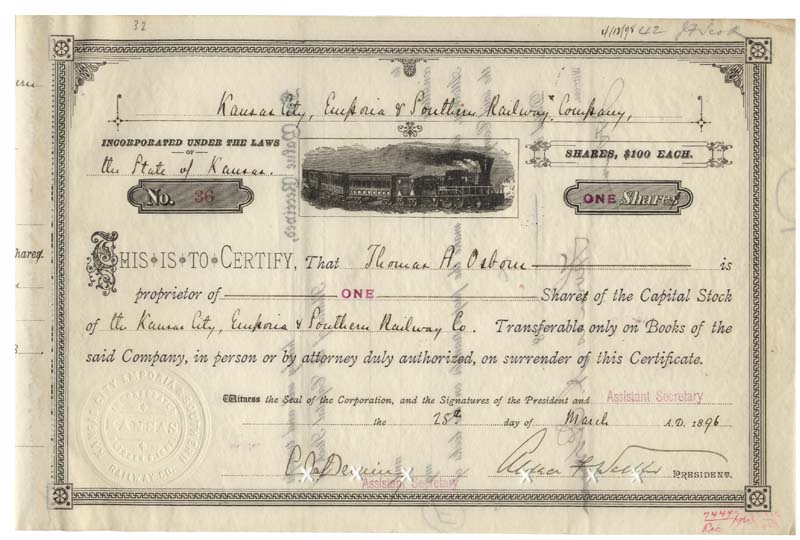 32
4/18/98 42
Kansas City, Emporia & Southern Railway Company,
INCORPORATED UNDER THE LAWS
OF
the State of Kansas.
SHARES, $100 EACH.
No. 36
ONE Shares
THIS IS TO CERTIFY, That Thomas A. Osborn is
proprietor of ONE Shares of the Capital Stock
of the Kansas City, Emporia & Southern Railway Co. Transferable only on Books of the
said Company, in person or by attorney duly authorized, on surrender of this Certificate.
Witness the Seal of the Corporation, and the Signatures of the President and Assistant Secretary
the 28th day of March A.D. 1896
Assistant Secretary
PRESIDENT.
KANSAS CITY EMPORIA & SOUTHERN
RAILWAY CO.
KANSAS
hares.